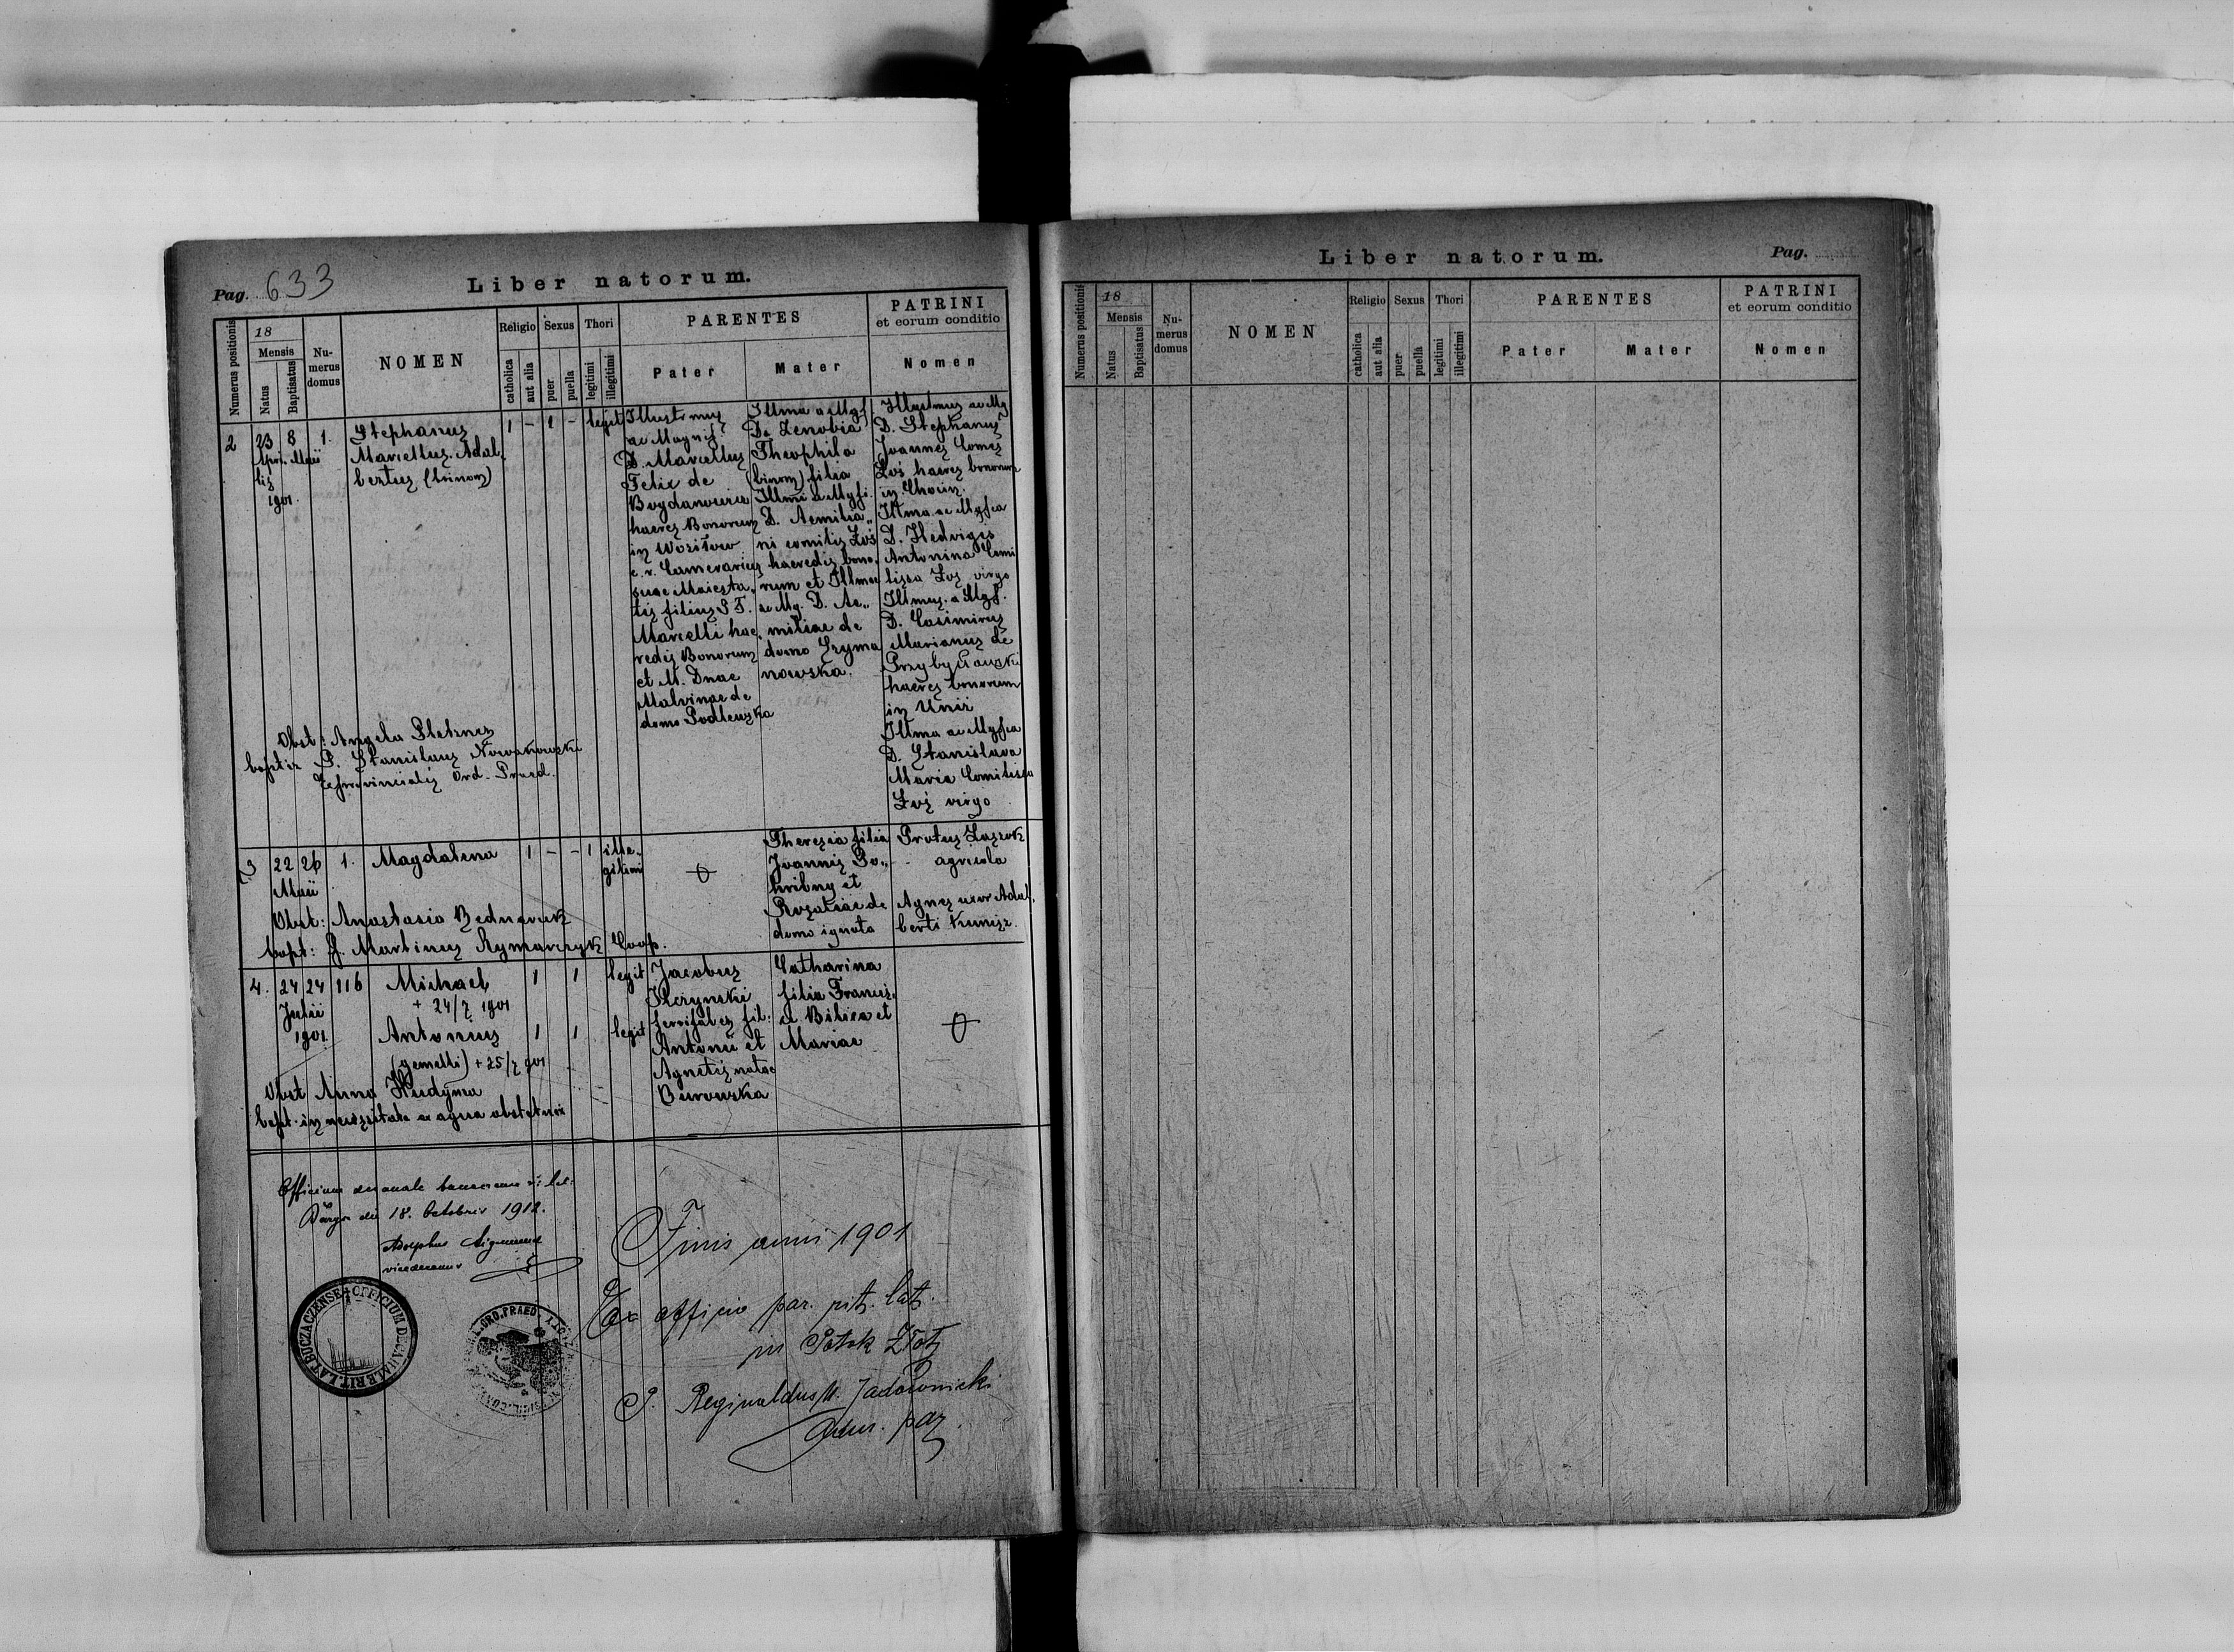 Pag. 633
Liber natorum.
Numerus positionis
18
Mensis
Natus
Baptisatus
Nu-
merus
domus
NOMEN
Religio
catholica
aut alia
Sexus
puer
puella
Thori
legitimi
illegitimi
PARENTES
Pater
Mater
PATRINI
et eorum conditio
Nomen
2
23
8
1.
Apri-
Maii
lis
1901.
Stephanus
Marcellus. Adal.
bertus (trinom)
1 - 1 - legit
Illustrmus
ac Magnif.
D. Marcellus
Felix de
Bogdanowicz
haeres Bonorum
in Woziłow
c. r. Camerarius
suae Maiesta„
tis filius S T.
Marcelli hae.
redis Bonorum
et M. Dnae
Malvinae de
domo Podlewska
Illma a Mgf
Da Zenobia
Theophila
(binom) filia
Illmi a Mgfi.
D. Aemilia„
ni comitis Łoś
haeredis bono.
rum et Illmae
ac Mg. D. Ae„
miliae de
domo Szyma
nowska.
Illustmus ac Mg
D. Stephanus
Joannes Comes
Łoś haeres bonorum
in Chocin.
Illma ac Mgfca
D. Hedviges
Antonina Comi
tissa Łoś virgo
Illmus. a Mgf.
D. Casimirus
Marianus de
Przybysławski
haeres bonorum
in Uniż
Illma ac Mgfca
D. Stanislava
Maria Comitissa
Łoś virgo
Obst: Angela Pletnes
baptiz P. Stanislaus Nowakowski
Exprovincialis Ord. Praed.
3
22
26
Maii
1.
Magdalena
1 - - 1 ille.
gitimi
Theresia filia
Joannis Po„
hribny et
Rozaliae de
domo ignota
Protus Laszok
agricola
Agnes uxor Adal.
berti Kunisz.
Obst: Anastasia Bednaruk
bapt: P. Martinus Rymarczyk Coop.
4.
24
24
116
Julii
1901.
Michael
+ 24/7 1901
Antonius
(gemelli) + 25/7 901
1 1 legit
1 1 legit
Jacobus
fil:
Antonii et
Agnetis natae
Burowska
Catharina
filia Francis.
ci Bilica et
Mariae
Obst Anna Hudyma
bapt. in necessitate ex aqua obstetrix
Officium decanale
die 18. Octobris 1912.
Adolphus
vicedecanus
Finis anni 1901
Ex officio par. rit. lat.
in Potok Złoty
P. Reginaldus M. Jadownicki
Adm. par.
OFFICIUM DECANALE RIT. LAT. BUCZACZENSE
ORD. PRAED.
Liber natorum.
Pag.
Numerus positionis
18
Mensis
Natus
Baptisatus
Nu-
merus
domus
NOMEN
Religio
catholica
aut alia
Sexus
puer
puella
Thori
legitimi
illegitimi
PARENTES
Pater
Mater
PATRINI
et eorum conditio
Nomen